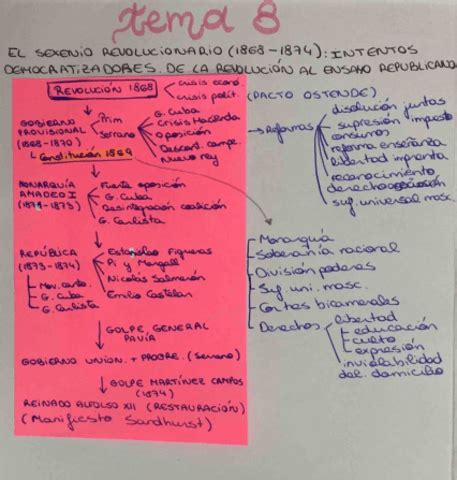 tema 8
EL SEXENIO REVOLUCIONARIO (1868-1874): INTENTOS
DEMOCRATIZADORES. DE LA REVOLUCIÓN AL ENSAYO REPUBLICANO
REVOLUCIÓN 1868
crisis econó.
crisis polít.
(PACTO OSTENDE)
GOBIERNO
PROVISIONAL
(1868-1870)
Prim
Serrano
G. Cuba
Crisis Hacienda
oposición
Descont. campe.
Nuevo rey
Constitución 1869
Reformas
disolución juntas
supresión impuesto
consumos
reforma enseñanza
libertad imprenta
reconocimiento
derecho asociación
suf. universal masc.
MONARQUÍA
AMADEO I
(1871-1873)
Fuerte oposición
G. Cuba
Desintegración coalición
G. Carlista
REPÚBLICA
(1873-1874)
Mov. canto.
G. Cuba
G. Carlista
Estanislao Figueras
Pi y Margall
Nicolás Salmerón
Emilio Castelar
Monarquía
Soberanía nacional
División poderes
Suf. uni. masc.
Cortes bicamerales
Derechos
libertad
educación
culto
expresión
inviolabilidad
del domicilio
GOLPE GENERAL
PAVÍA
GOBIERNO UNION. + PROGRE. (Serrano)
GOLPE MARTÍNEZ CAMPOS
(1874)
REINADO ALFONSO XII (RESTAURACIÓN)
(Manifiesto Sandhurst)